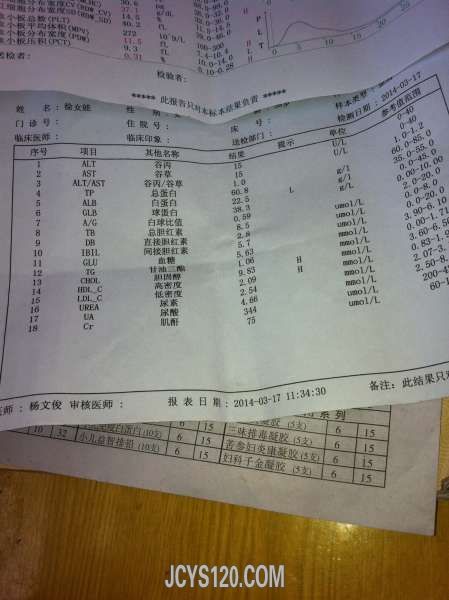 血小板总数(PLT) 272 10^9/L 100-300
血小板平均体积(MPV) 9.3
血小板压积(PCT) 0.31 % 0.10-0.28
检验者:
***** 此报告只对本标本结果负责 *****
姓 名: 徐女 样本类型:
门诊号: 住院号: 床 号: 检测日期: 2014-03-17
临床医师: 临床印象: 送检部门:
序号 项目 其他名称 结果 提示 单位 参考值范围
1 ALT 谷丙 15 U/L 0-40
2 AST 谷草 15 U/L 0-40
3 ALT/AST 谷丙/谷草 1.0 1.0-1.2
4 TP 总蛋白 60.8 g/l 60.0-85.0
5 ALB 白蛋白 22.5 L g/l 35.0-55.0
6 GLB 球蛋白 38.3 g/l 0.0-45.0
7 A/G 白球比值 0.59 0.00-10.00
8 TB 总胆红素 8.5 umol/L 2.0-20.0
9 DB 直接胆红素 2.8 umol/L 0.0-8.0
10 IBIL 间接胆红素 5.7 umol/L 0.0-20.0
11 GLU 血糖 5.63 mmol/L 3.90-6.10
12 TG 甘油三酯 1.06 mmol/L 0.00-1.71
13 CHOL 胆固醇 9.83 H mmol/L 3.60-6.50
14 HDL_C 高密度 2.09 H mmol/L 0.83-1.9
15 LDL_C 低密度 2.54 mmol/L 2.07-3.
16 UREA 尿素 4.66 mmol/L 2.50-8.
17 UA 尿酸 344 umol/L 200-4
18 Cr 肌酐 75 umol/L 60-1
医师: 杨文俊 审核医师: 报表日期: 2014-03-17 11:34:30 备注: 此结果只对
系列
三味排毒凝胶 (5支) 6 15
10 32 小儿益智接铅 (10支) 6 15 苦参妇炎康凝胶 (5支) 6 15
妇科千金凝胶 (5支) 6 15
JCYS120.COM